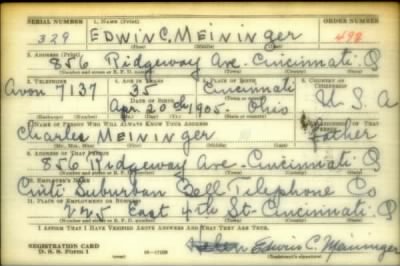 SERIAL NUMBER 1. NAME (Print) ORDER NUMBER
329 EDWIN C. MEININGER 498
(First) (Middle) (Last)
2. ADDRESS (Print)
856 Ridgeway Ave. Cincinnati. O
(Number and street or R. F. D. number) (Town) (County) (State)
3. TELEPHONE 4. AGE IN YEARS 5. PLACE OF BIRTH 6. COUNTRY OF CITIZENSHIP
Avon 7137 35 Cincinnati
DATE OF BIRTH
Apr. 20th 1905. Ohio U.S.A
7. NAME OF PERSON WHO WILL ALWAYS KNOW YOUR ADDRESS
Charles MEININGER Father
9. ADDRESS OF THAT PERSON
856 Ridgeway Ave. Cincinnati. O
(Number and street or R. F. D. number) (Town) (County) (State)
10. EMPLOYER'S NAME
Cinti Suburban Bell Telephone Co
11. PLACE OF EMPLOYMENT OR BUSINESS
225 East 4th St-Cincinnati. O
(Number and street or R. F. D. number) (Town) (County) (State)
I AFFIRM THAT I HAVE VERIFIED ABOVE ANSWERS AND THAT THEY ARE TRUE.
REGISTRATION CARD
D. S. S. Form 1 Edwin C. Meininger
(Registrant's signature)